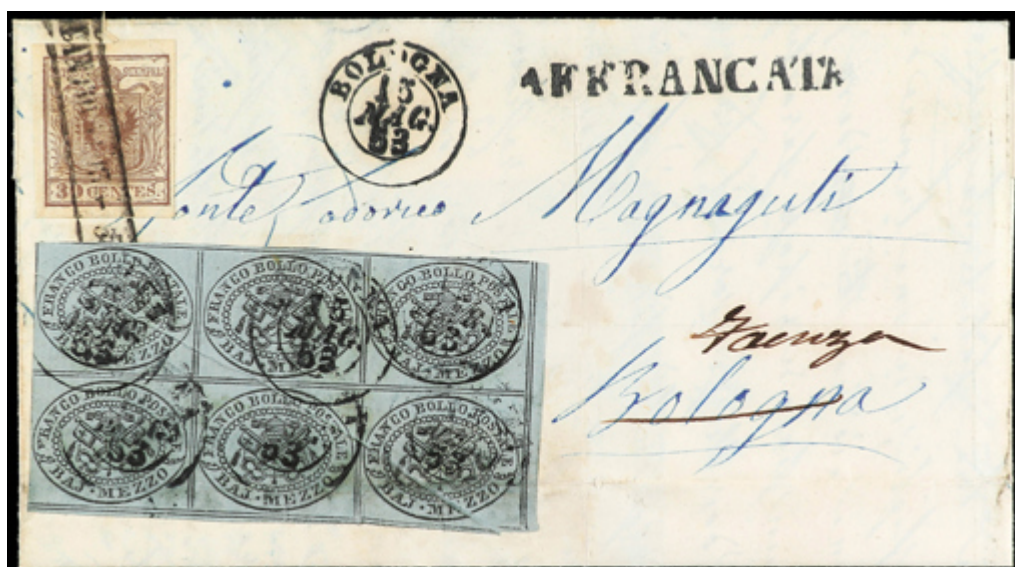 BOLOGNA
13
MAG.
53
AFFRANCATA
30 CENTES.
Magnaguti
Faenza
Bologna
FRANCO BOLLO POSTALE
BAJ · MEZZO
FRANCO BOLLO POSTALE
13
MAG.
53
BAJ · MEZZO
FRANCO BOLLO POSTALE
BAJ · MEZZO
FRANCO BOLLO POSTALE
53
BAJ · MEZZO
FRANCO BOLLO POSTALE
53
BAJ · MEZZO
FRANCO BOLLO POSTALE
53
BAJ · MEZZO